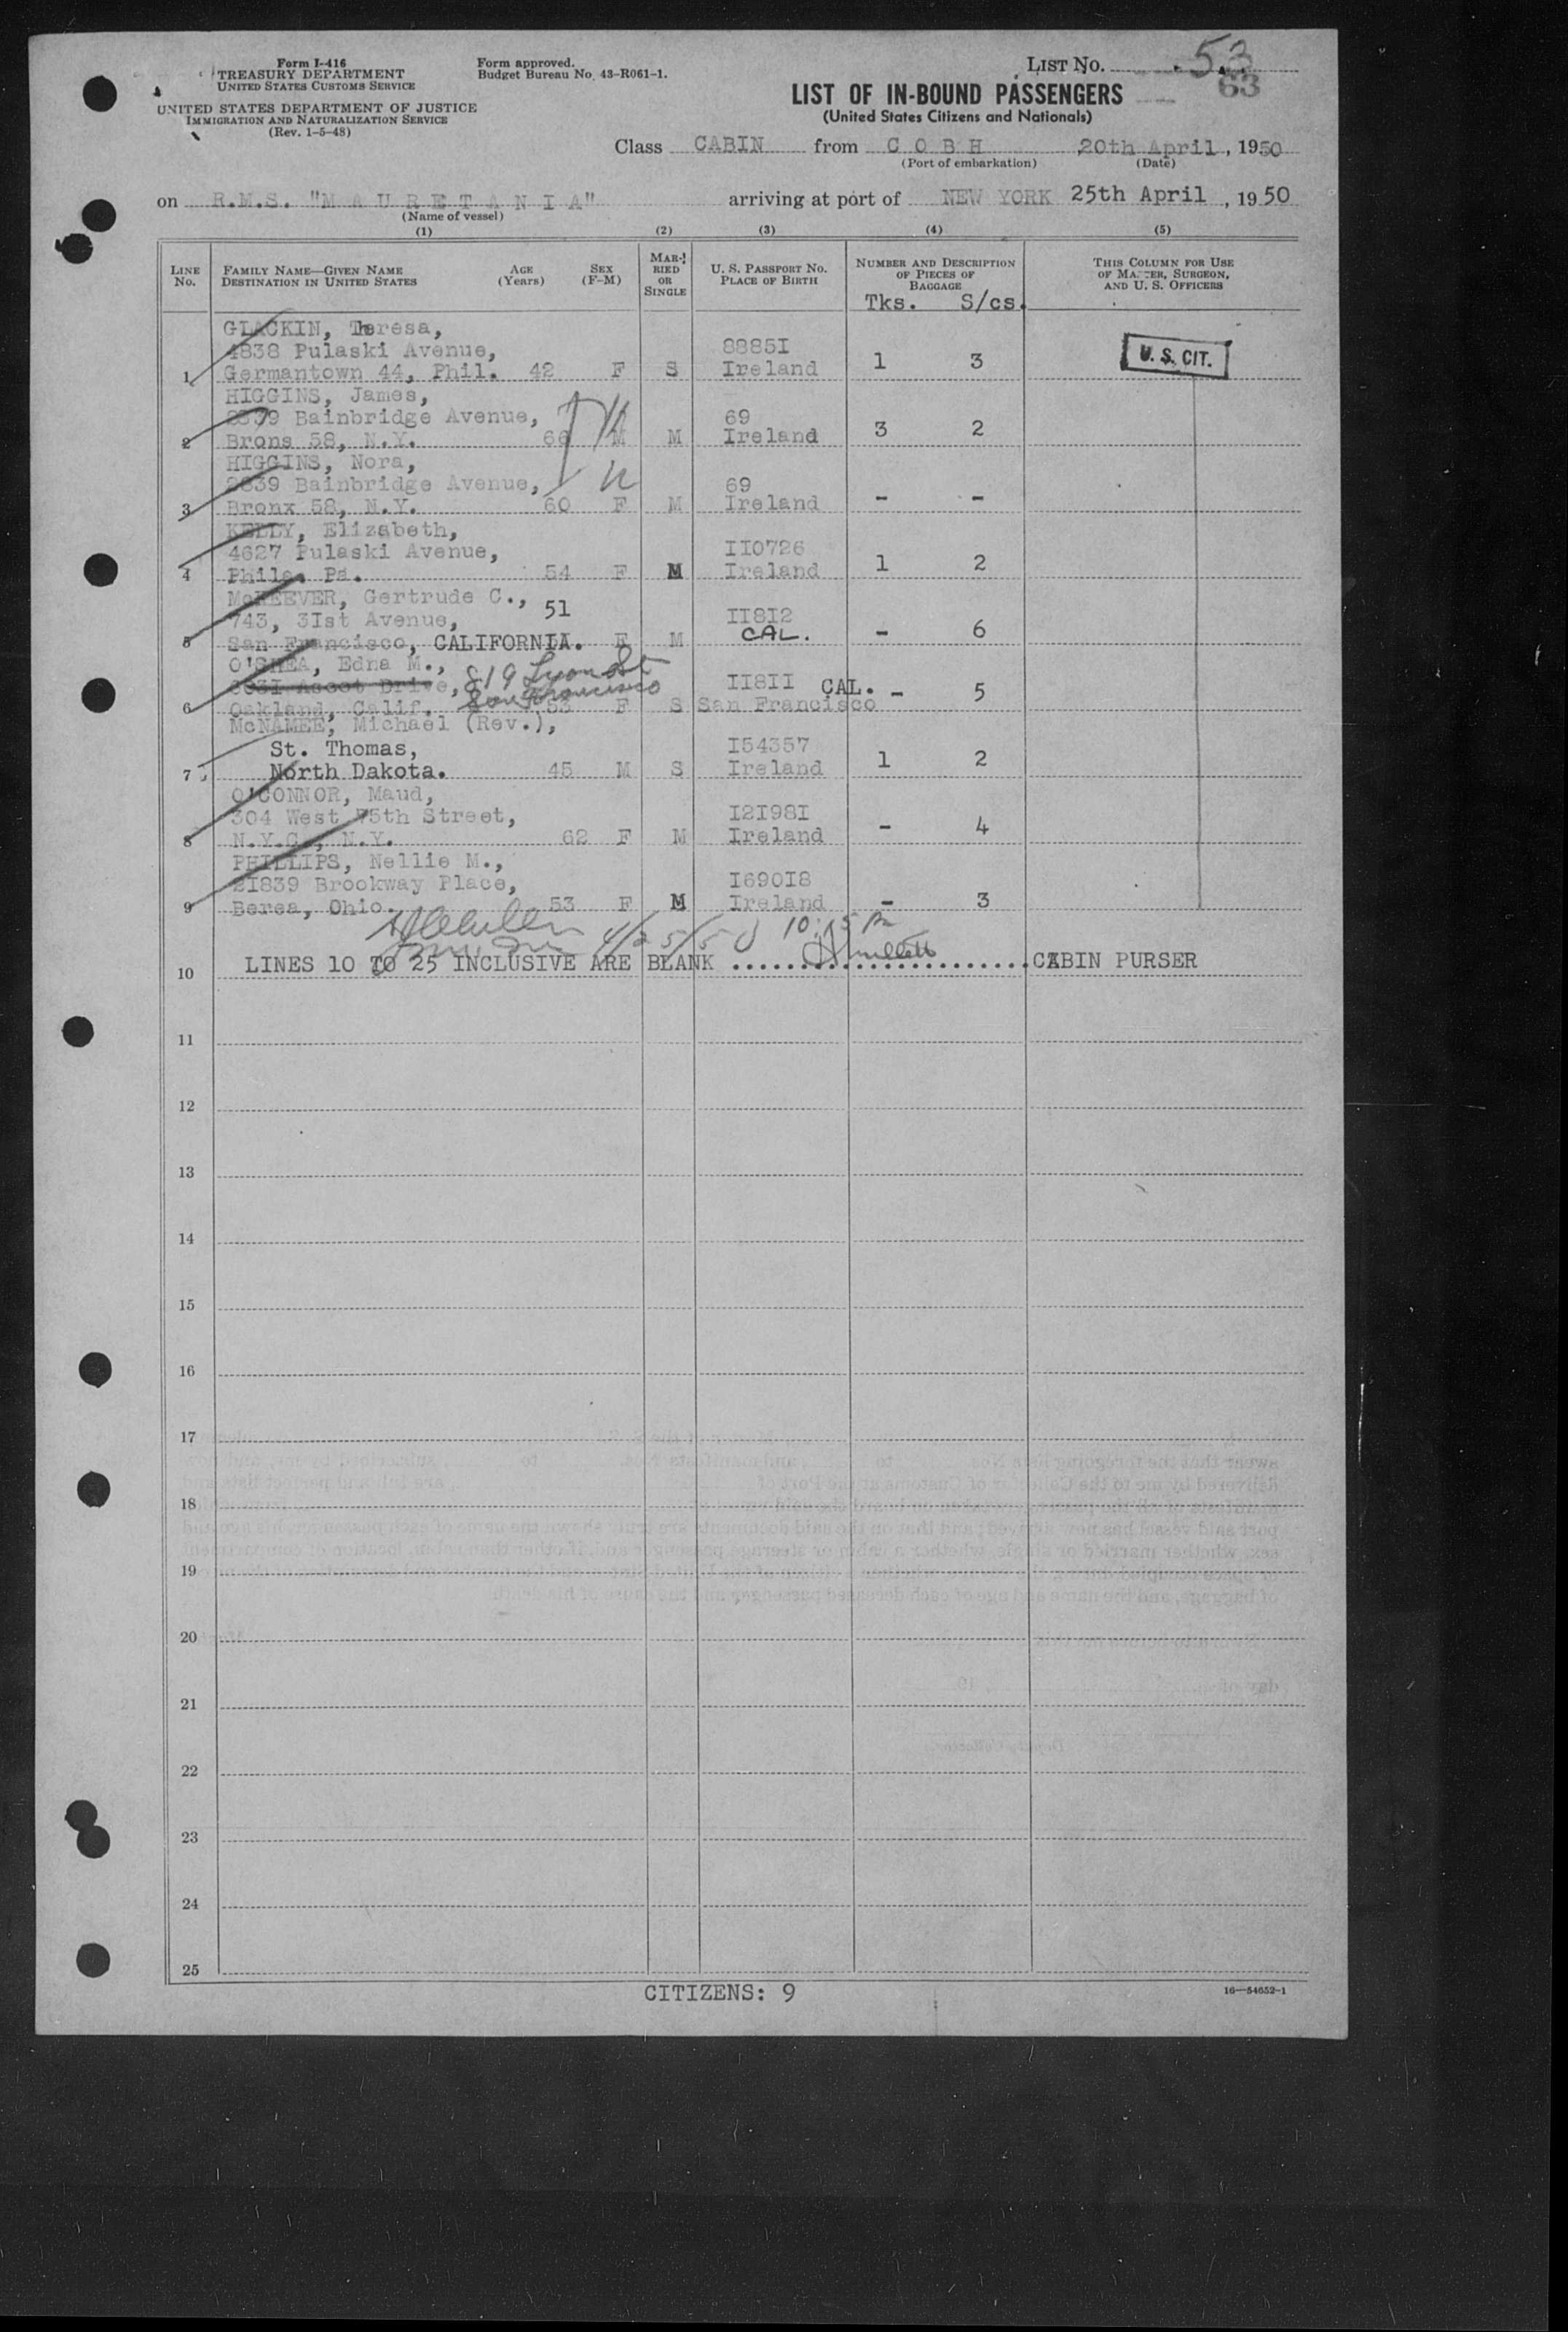 Form I-416
TREASURY DEPARTMENT
UNITED STATES CUSTOMS SERVICE
UNITED STATES DEPARTMENT OF JUSTICE
IMMIGRATION AND NATURALIZATION SERVICE
(Rev. 1-5-48)
Form approved.
Budget Bureau No. 43-R061-1.
LIST NO. 53
63
LIST OF IN-BOUND PASSENGERS
(United States Citizens and Nationals)
Class CABIN from C O B H 20th April, 1950
(Port of embarkation) (Date)
on R.M.S. "M A U R E T A N I A" arriving at port of NEW YORK 25th April, 1950
(Name of vessel)
(1) (2) (3) (4) (5)
LINE NO.
FAMILY NAME—GIVEN NAME
DESTINATION IN UNITED STATES
AGE (Years)
SEX (F-M)
MARRIED OR SINGLE
U. S. PASSPORT NO.
PLACE OF BIRTH
NUMBER AND DESCRIPTION OF PIECES OF BAGGAGE
Tks. S/cs.
THIS COLUMN FOR USE OF MASTER, SURGEON, AND U. S. OFFICERS
GLACKIN, Theresa,
4838 Pulaski Avenue, 8885I
1 Germantown 44, Phil. 42 F S Ireland 1 3
U. S. CIT.
HIGGINS, James,
2839 Bainbridge Avenue, 69
2 Brons 58, N.Y. 66 M M Ireland 3 2
HIGGINS, Nora,
2839 Bainbridge Avenue, 69
3 Bronx 58, N.Y. 60 F M Ireland - -
KELLY, Elizabeth,
4627 Pulaski Avenue, II0726
4 Phila. Pa. 54 F M Ireland 1 2
McKEEVER, Gertrude C., 51
743, 3Ist Avenue, II8I2
5 San Francisco, CALIFORNIA. F M CAL. - 6
O'SHEA, Edna M., 819 Lyon St
Ascot Drive, San Francisco II8II CAL.
6 Oakland, Calif. 53 F S San Francisco - 5
McNAMEE, Michael (Rev.),
St. Thomas, I54357
7 North Dakota. 45 M S Ireland 1 2
O'CONNOR, Maud,
304 West 75th Street, I2I98I
8 N.Y.C., N.Y. 62 F M Ireland - 4
PHILLIPS, Nellie M.,
2I839 Brookway Place, I690I8
9 Berea, Ohio. 53 F M Ireland - 3
4/25/50 10:15 PM
10 LINES 10 TO 25 INCLUSIVE ARE BLANK ............................CABIN PURSER
11
12
13
14
15
16
17
18
19
20
21
22
23
24
25
CITIZENS: 9
16—54652-1